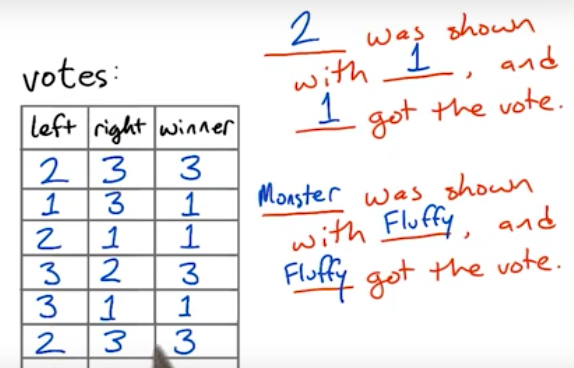 votes:
left right winner
2 3 3
1 3 1
2 1 1
3 2 3
3 1 1
2 3 3
2 was shown
with 1, and
1 got the vote.
Monster was shown
with Fluffy, and
Fluffy got the vote.